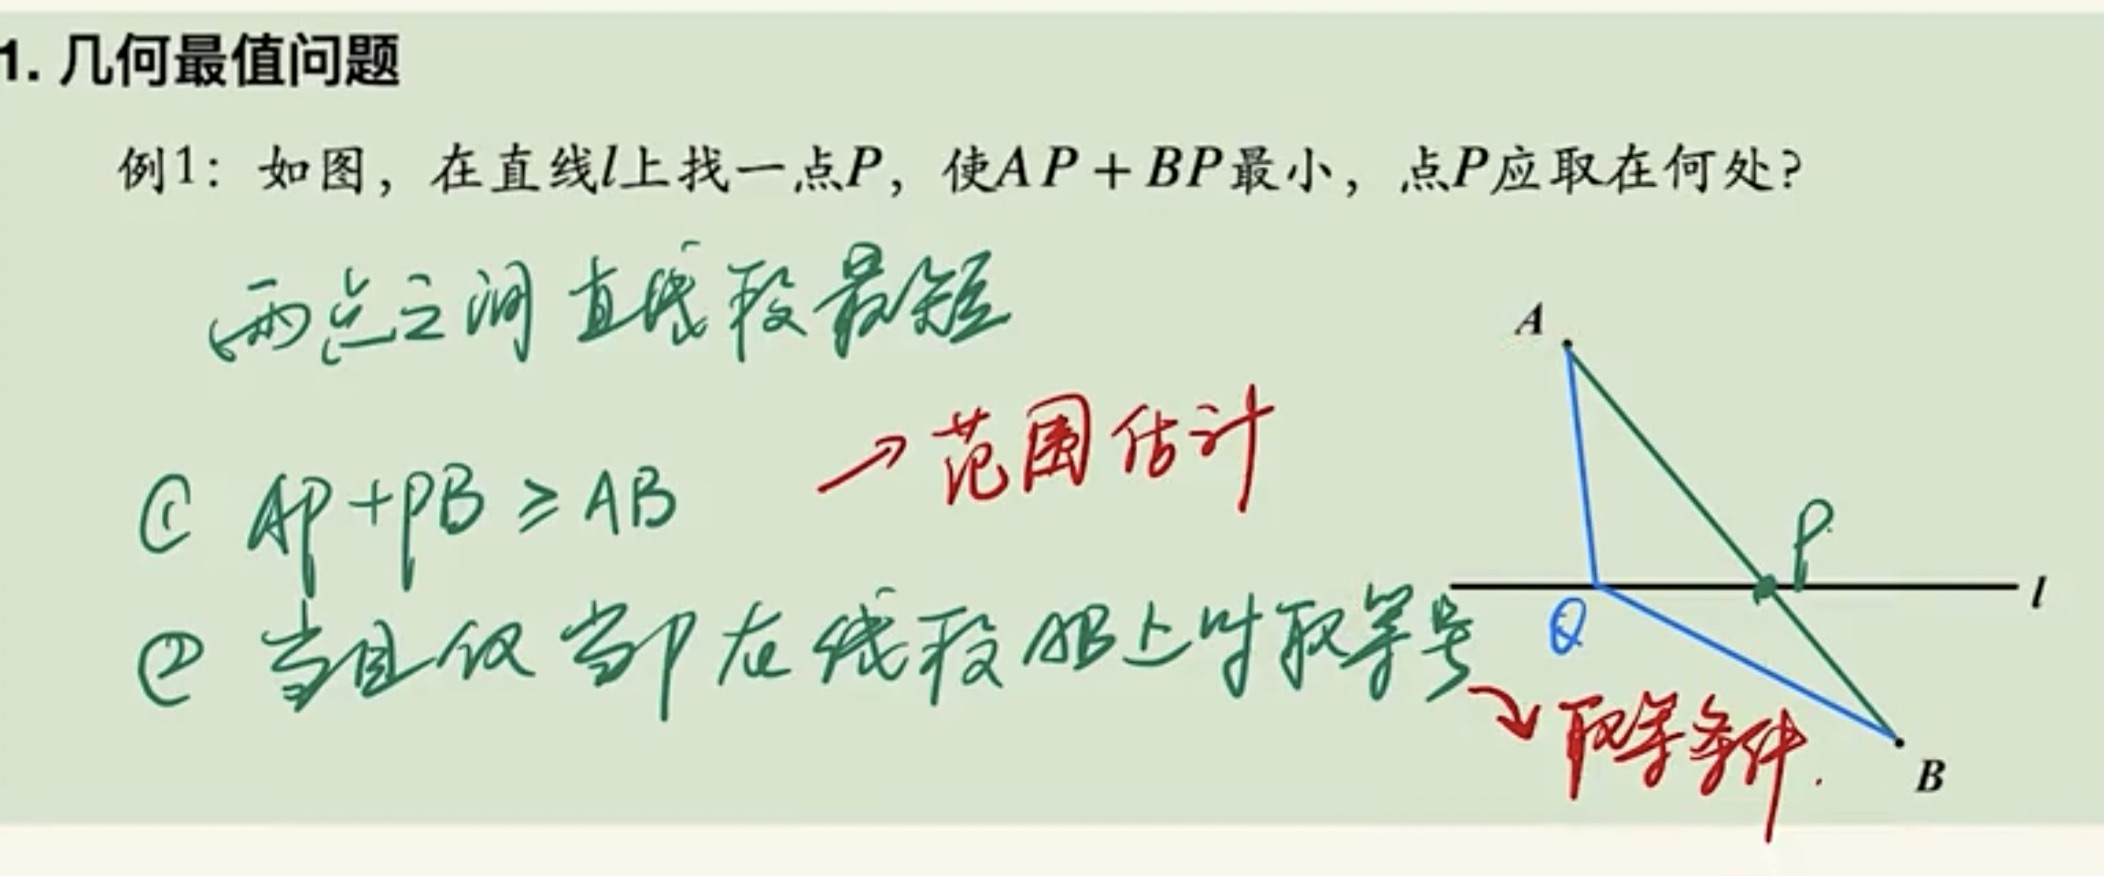 1. 几何最值问题
例1：如图，在直线l上找一点P，使AP + BP最小，点P应取在何处？
两点之间直线段最短
→范围估计
① AP+PB ≥ AB
② 当且仅当P在线段AB上时取等号
取等条件.
A
P
l
Q
B